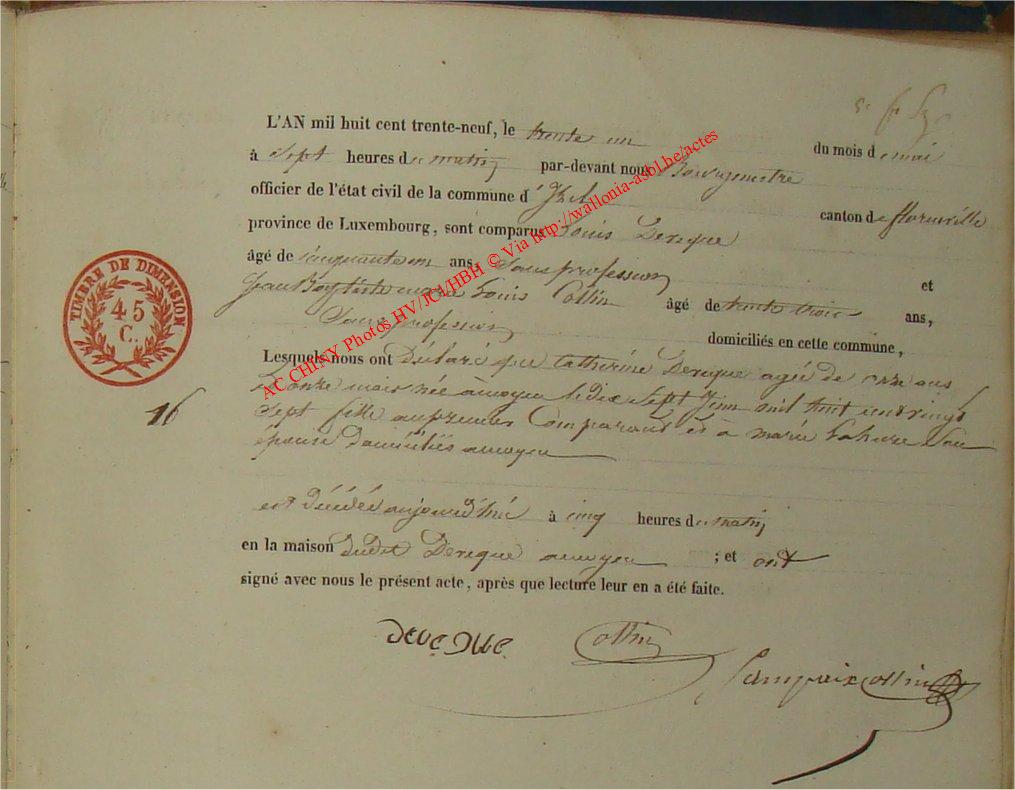 L'AN mil huit cent trente-neuf, le trente un du mois de mai
à sept heures du matin par-devant nous Bourgmestre
officier de l'état civil de la commune d'Izel canton de florenville
province de Luxembourg, sont comparus Louis Dereque
âgé de cinquante un ans, Sans profession et
Jean Louis Collin âgé de trente trois ans,
Sans profession domiciliés en cette commune,
Lesquels nous ont Déclaré que Catherine Dereque agée de onze ans
onze mois née à moyen le dix sept Juin mil huit cent vingt
16
sept fille au premier Comparant et à marie Lahure Son
épouse domiciliés a moyen
est Décédée aujourd'hui à cinq heures du matin
en la maison dudit Dereque a moyen ; et ont
signé avec nous le présent acte, après que lecture leur en a été faite.
Collin
Lampaix Collin
TIMBRE DE DIMENSION
45
C.
AC CHINY Photos HV/JCI/HBH © Via http://wallonia-asbl.be/actes